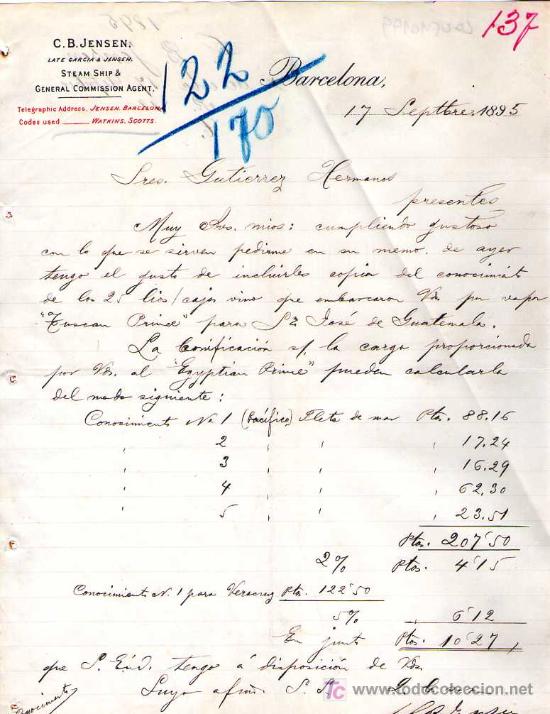 137
C.B. JENSEN,
LATE GARCIA & JENSEN.
STEAM SHIP &
GENERAL COMMISSION AGENT.
Telegraphic Address, JENSEN, BARCELONA
Codes used WATKINS, SCOTTS.
122
170
Barcelona,
17 Septtbre 1895
Sres. Gutierrez Hermanos
presentes
Muy Sres. mios: cumpliendo gustoso
con lo que se sirven pedirme en su memo. de ayer
tengo el gusto de incluirles copia del conocimto
de los 25 cajas vino que embarcaron Vds por vapor
"Tuscan Prince" para Sn José de Guatemala.
La bonificación s/ la carga proporcionada
por Vds. al "Egyptian Prince" pueden calcularla
del modo siguiente:
Conocimiento No 1 (Pacifico) Flete de mar Ptas. 88.16
" 2 " " 17.24
" 3 " " 16.29
" 4 " " 62,30
" 5 " " 23.51
Ptas. 207'50
2% Ptas. 4'15
Conocimiento N. 1 para Veracruz Ptas. 122'50
5% " 6'12
En junto Ptas. 10'27,
que S. E.ú O. tengo á disposición de Vds.
Suyo afmo. S. S.
todocoleccion.net